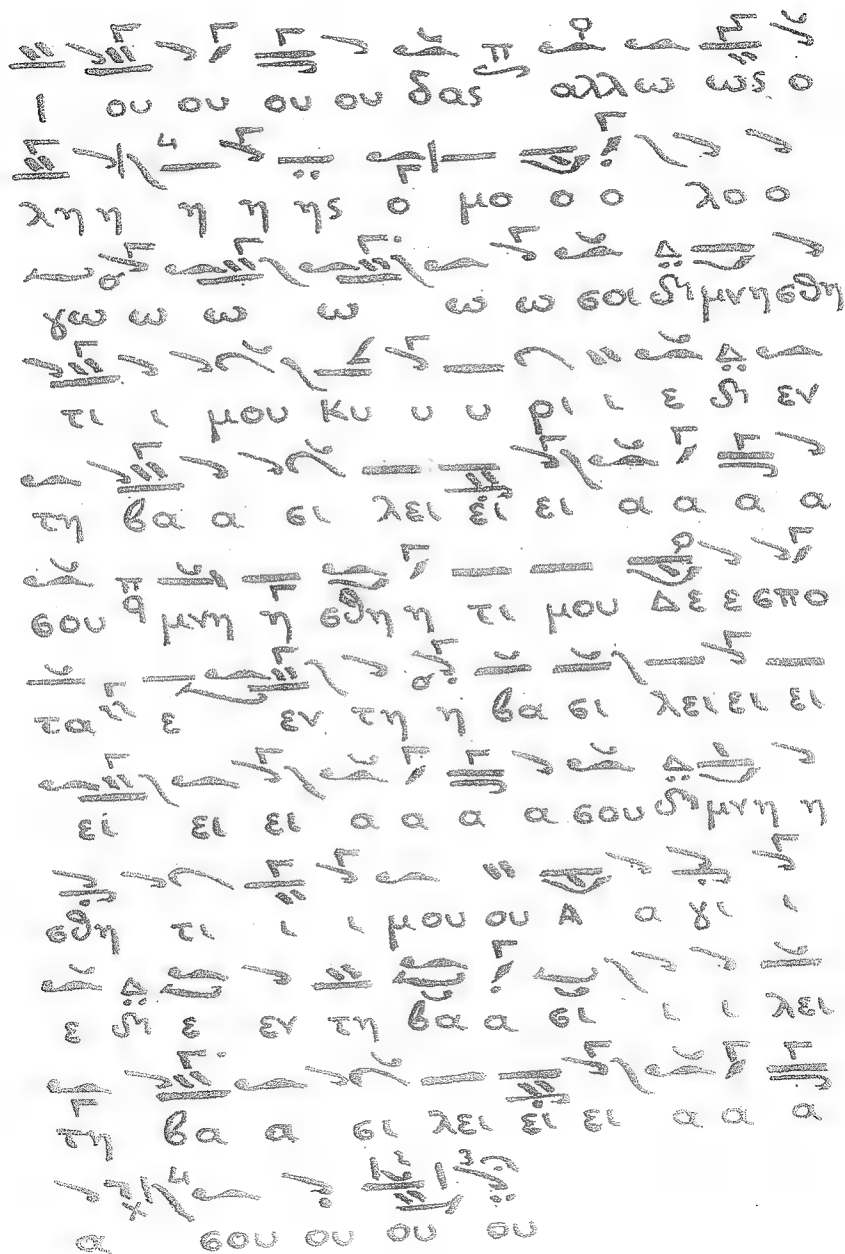 ι ου ου ου ου δας αλλω ως ο
λη η η η ης ο μο ο ο λο ο
γω ω ω ω ω ω σοι μνη σθη
τι ι μου Κυ υ υ ρι ι ε εν
τη βα α σι λει ει ει α α α α
σου μνη η σθη η τι μου Δε ε σπο
τα ε εν τη η βα σι λει ει ει
ει ει ει α α α α σου μνη η
σθη τι ι ι μου ου Α α γι ι
ε ε εν τη βα α σι ι ι λει
τη βα α σι λει ει ει α α α
α σου ου ου ου